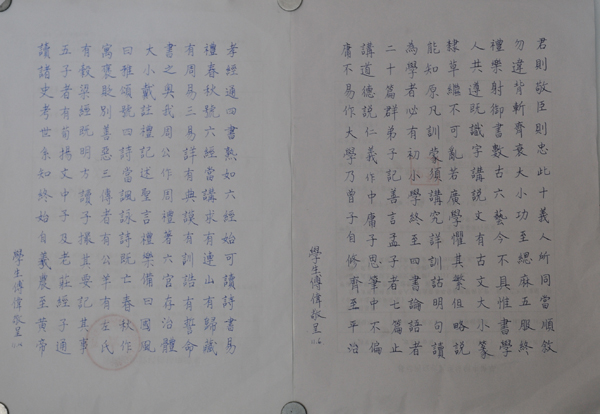 君則敬臣則忠此十義人所同當順敘
勿違背斬齊衰大小功至緦麻五服終
禮樂射御書數古六藝今不具惟書學
人共遵既識字講說文有古文大小篆
隸草繼不可亂若廣學懼其繁但略說
能知原凡訓蒙須講究詳訓詁明句讀
為學者必有初小學終至四書論語者
二十篇群弟子記善言孟子者七篇止
講道德說仁義作中庸子思筆中不偏
庸不易作大學乃曾子自修齊至平治
學生傅偉敬呈
孝經通四書熟如六經始可讀詩書易
禮春秋號六經當講求有連山有歸藏
有周易三易詳有典謨有訓誥有誓命
書之奧我周公作周禮著六官存治體
大小戴註禮記述聖言禮樂備曰國風
曰雅頌號四詩當諷詠詩既亡春秋作
寓褒貶別善惡三傳者有公羊有左氏
有穀梁經既明方讀子撮其要記其事
五子者有荀揚文中子及老莊經子通
讀諸史考世系知終始自羲農至黃帝
學生傅偉敬呈